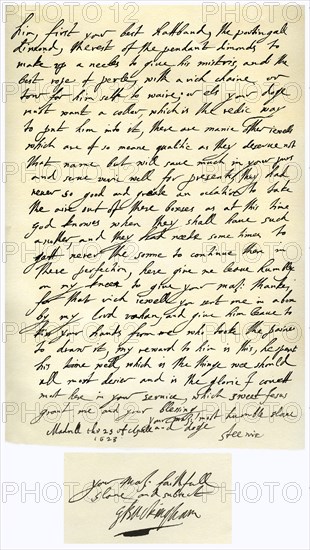 him, first your best hattband, the portingall
dimond, the rest of the pendant dimonds to
make up a necles to give his mistris, and the
best rope of perle, with a rich chaine or
tow for him selfe to waire, or els your doge
must want a coller, which is the redie way
to put him into it, there are manie other jewels
which are of so meane qualitie as they deserve not
that name but will save much in your purs
and serve verie well for presents, they had
never so good and great an ocation to take
the aire out of there boxes as at this time
god knowes when they shall have such
another and they had neede some times to
gett never the sonne to continew them in
there perfection, here give me leave humbly
on my knees to give your maj: thankes
for that rich jewell you sent me in a box
by my lord vahan, and give him leave to
kiss your hands from me who tooke the paine
to draw it, my reward to him is this, he spent
his time well, which is the thing wee should
all most desier and is the glorie I covett
most here in your service, which sweet Jesus
grant me and your blessing
your maj: most humble slave
and doge
Madrill the 25 of Aprill
1623
Steenie
your maj: faithfull
slave and subiect
GBuckingham
PHOTO12